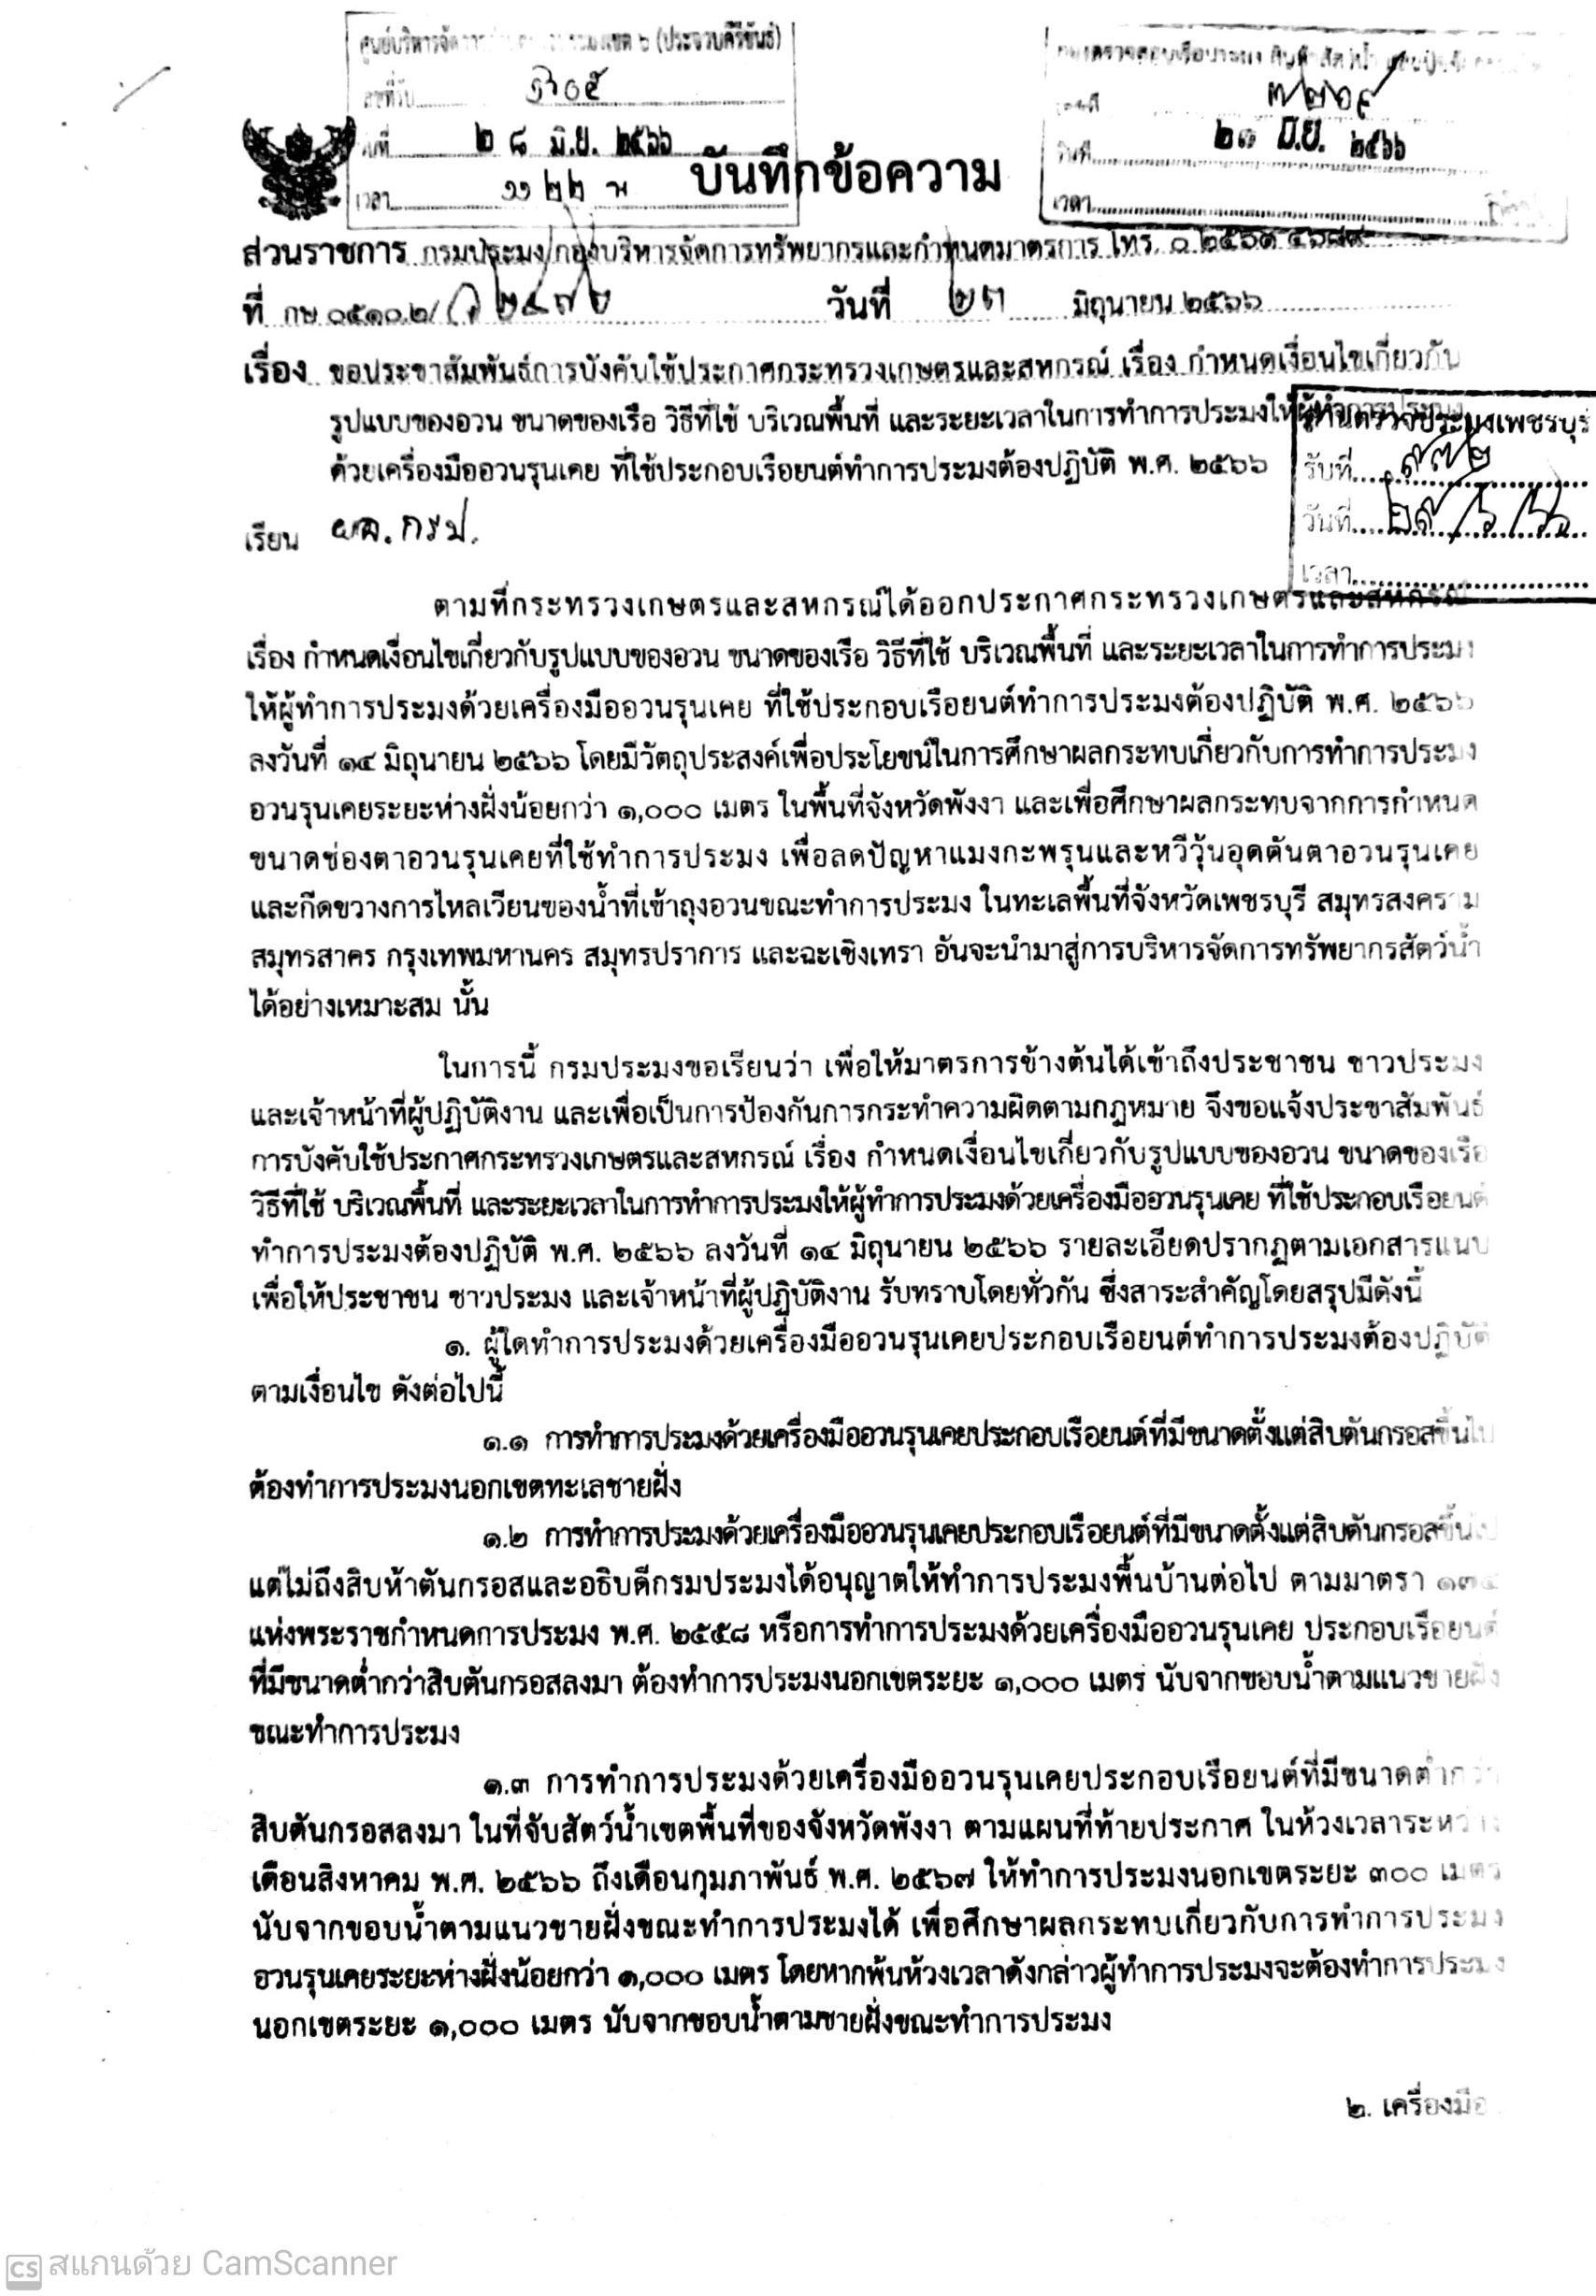 ศูนย์บริหารจัดการ เขต ๖ (ประจวบคีรีขันธ์)
เลขที่รับ
วันที่ ๒ ๘ มิ.ย. ๒๕๖๖
เวลา
กองตรวจสอบเรือประมง สินค้าสัตว์น้ำ
วันที่ ๒๓ มิ.ย. ๒๕๖๖
เวลา
บันทึกข้อความ
ส่วนราชการ กรมประมง กองบริหารจัดการทรัพยากรและกำหนดมาตรการ โทร. ๐ ๒๕๖๑
ที่ กษ ๐๕๑๐.๒/ วันที่ ๒๓ มิถุนายน ๒๕๖๖
เรื่อง ขอประชาสัมพันธ์การบังคับใช้ประกาศกระทรวงเกษตรและสหกรณ์ เรื่อง กำหนดเงื่อนไขเกี่ยวกับ
รูปแบบของอวน ขนาดของเรือ วิธีที่ใช้ บริเวณพื้นที่ และระยะเวลาในการทำการประมงให้ผู้ทำการประมง
ด้วยเครื่องมืออวนรุนเคย ที่ใช้ประกอบเรือยนต์ทำการประมงต้องปฏิบัติ พ.ศ. ๒๕๖๖
ด่านตรวจประมงเพชรบุรี
รับที่ ๙๗๒
วันที่ ๒๙/๖/๖๖
เวลา
เรียน ผอ.กรป.
ตามที่กระทรวงเกษตรและสหกรณ์ได้ออกประกาศกระทรวงเกษตรและสหกรณ์
เรื่อง กำหนดเงื่อนไขเกี่ยวกับรูปแบบของอวน ขนาดของเรือ วิธีที่ใช้ บริเวณพื้นที่ และระยะเวลาในการทำการประมง
ให้ผู้ทำการประมงด้วยเครื่องมืออวนรุนเคย ที่ใช้ประกอบเรือยนต์ทำการประมงต้องปฏิบัติ พ.ศ. ๒๕๖๖
ลงวันที่ ๑๔ มิถุนายน ๒๕๖๖ โดยมีวัตถุประสงค์เพื่อประโยชน์ในการศึกษาผลกระทบเกี่ยวกับการทำการประมง
อวนรุนเคยระยะห่างฝั่งน้อยกว่า ๑,๐๐๐ เมตร ในพื้นที่จังหวัดพังงา และเพื่อศึกษาผลกระทบจากการกำหนด
ขนาดช่องตาอวนรุนเคยที่ใช้ทำการประมง เพื่อลดปัญหาแมงกะพรุนและหวีวุ้นอุดตันตาอวนรุนเคย
และกีดขวางการไหลเวียนของน้ำที่เข้าถุงอวนขณะทำการประมง ในทะเลพื้นที่จังหวัดเพชรบุรี สมุทรสงคราม
สมุทรสาคร กรุงเทพมหานคร สมุทรปราการ และฉะเชิงเทรา อันจะนำมาสู่การบริหารจัดการทรัพยากรสัตว์น้ำ
ได้อย่างเหมาะสม นั้น
ในการนี้ กรมประมงขอเรียนว่า เพื่อให้มาตรการข้างต้นได้เข้าถึงประชาชน ชาวประมง
และเจ้าหน้าที่ผู้ปฏิบัติงาน และเพื่อเป็นการป้องกันการกระทำความผิดตามกฎหมาย จึงขอแจ้งประชาสัมพันธ์
การบังคับใช้ประกาศกระทรวงเกษตรและสหกรณ์ เรื่อง กำหนดเงื่อนไขเกี่ยวกับรูปแบบของอวน ขนาดของเรือ
วิธีที่ใช้ บริเวณพื้นที่ และระยะเวลาในการทำการประมงให้ผู้ทำการประมงด้วยเครื่องมืออวนรุนเคย ที่ใช้ประกอบเรือยนต์
ทำการประมงต้องปฏิบัติ พ.ศ. ๒๕๖๖ ลงวันที่ ๑๔ มิถุนายน ๒๕๖๖ รายละเอียดปรากฏตามเอกสารแนบ
เพื่อให้ประชาชน ชาวประมง และเจ้าหน้าที่ผู้ปฏิบัติงาน รับทราบโดยทั่วกัน ซึ่งสาระสำคัญโดยสรุปมีดังนี้
๑. ผู้ใดทำการประมงด้วยเครื่องมืออวนรุนเคยประกอบเรือยนต์ทำการประมงต้องปฏิบัติ
ตามเงื่อนไข ดังต่อไปนี้
๑.๑ การทำการประมงด้วยเครื่องมืออวนรุนเคยประกอบเรือยนต์ที่มีขนาดตั้งแต่สิบตันกรอสขึ้นไป
ต้องทำการประมงนอกเขตทะเลชายฝั่ง
๑.๒ การทำการประมงด้วยเครื่องมืออวนรุนเคยประกอบเรือยนต์ที่มีขนาดตั้งแต่สิบตันกรอสขึ้นไป
แต่ไม่ถึงสิบห้าตันกรอสและอธิบดีกรมประมงได้อนุญาตให้ทำการประมงพื้นบ้านต่อไป ตามมาตรา ๑๗๔
แห่งพระราชกำหนดการประมง พ.ศ. ๒๕๕๘ หรือการทำการประมงด้วยเครื่องมืออวนรุนเคย ประกอบเรือยนต์
ที่มีขนาดต่ำกว่าสิบตันกรอสลงมา ต้องทำการประมงนอกเขตระยะ ๑,๐๐๐ เมตร นับจากขอบน้ำตามแนวชายฝั่ง
ขณะทำการประมง
๑.๓ การทำการประมงด้วยเครื่องมืออวนรุนเคยประกอบเรือยนต์ที่มีขนาดต่ำกว่า
สิบตันกรอสลงมา ในที่จับสัตว์น้ำเขตพื้นที่ของจังหวัดพังงา ตามแผนที่ท้ายประกาศ ในห้วงเวลาระหว่าง
เดือนสิงหาคม พ.ศ. ๒๕๖๖ ถึงเดือนกุมภาพันธ์ พ.ศ. ๒๕๖๗ ให้ทำการประมงนอกเขตระยะ ๓๐๐ เมตร
นับจากขอบน้ำตามแนวชายฝั่งขณะทำการประมงได้ เพื่อศึกษาผลกระทบเกี่ยวกับการทำการประมง
อวนรุนเคยระยะห่างฝั่งน้อยกว่า ๑,๐๐๐ เมตร โดยหากพ้นห้วงเวลาดังกล่าวผู้ทำการประมงจะต้องทำการประมง
นอกเขตระยะ ๑,๐๐๐ เมตร นับจากขอบน้ำตามชายฝั่งขณะทำการประมง
๒. เครื่องมือ
CS สแกนด้วย CamScanner